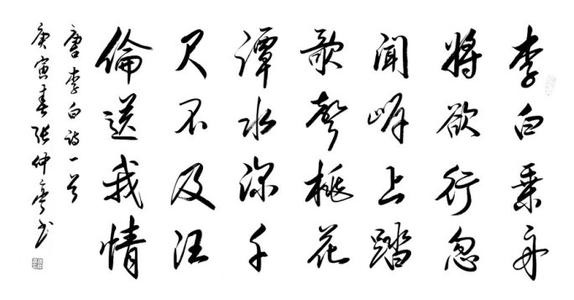 李白乘舟
將欲行忽
聞岸上踏
歌聲桃花
潭水深千
尺不及汪
倫送我情
唐李白诗一首
庚寅春张仲亭书